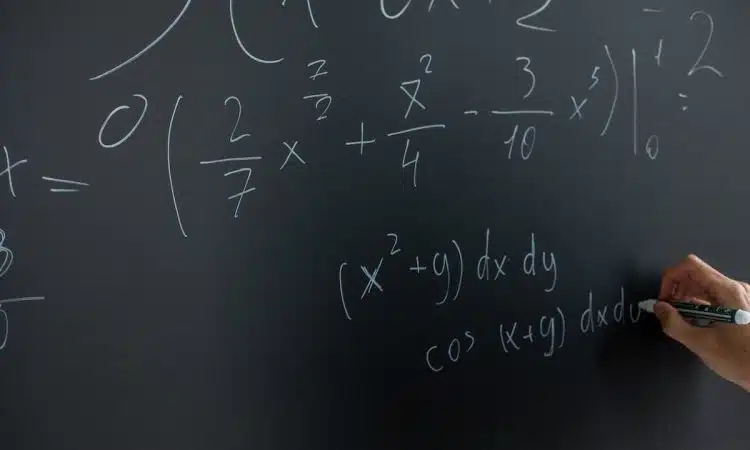 2
x = 0 (2/7 x^{7/2} + x^2/4 - 3/10 x^5)|_0^1 = 2
(x^2+y) dx dy
cos (x+y) dx dy